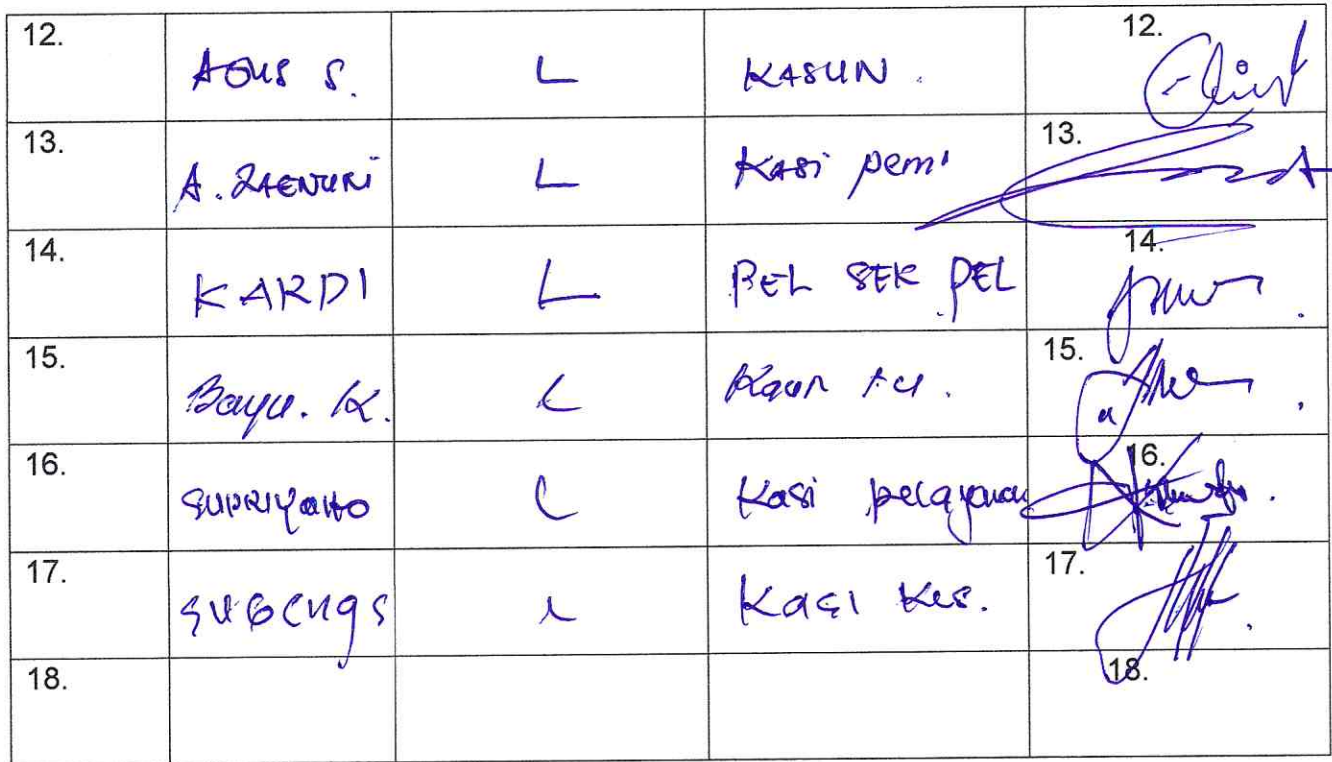 12. AGUS S. L KASUN. 12.
13. A. ZAENURI L KASI pem' 13.
14. KARDI L BEL SEK PEL 14.
15. Bayu. K. L Kaur tu. 15.
16. SUPRIYANTO L Kasi pelayanan 16.
17. SUGENG S L Kasi Kes. 17.
18. 18.